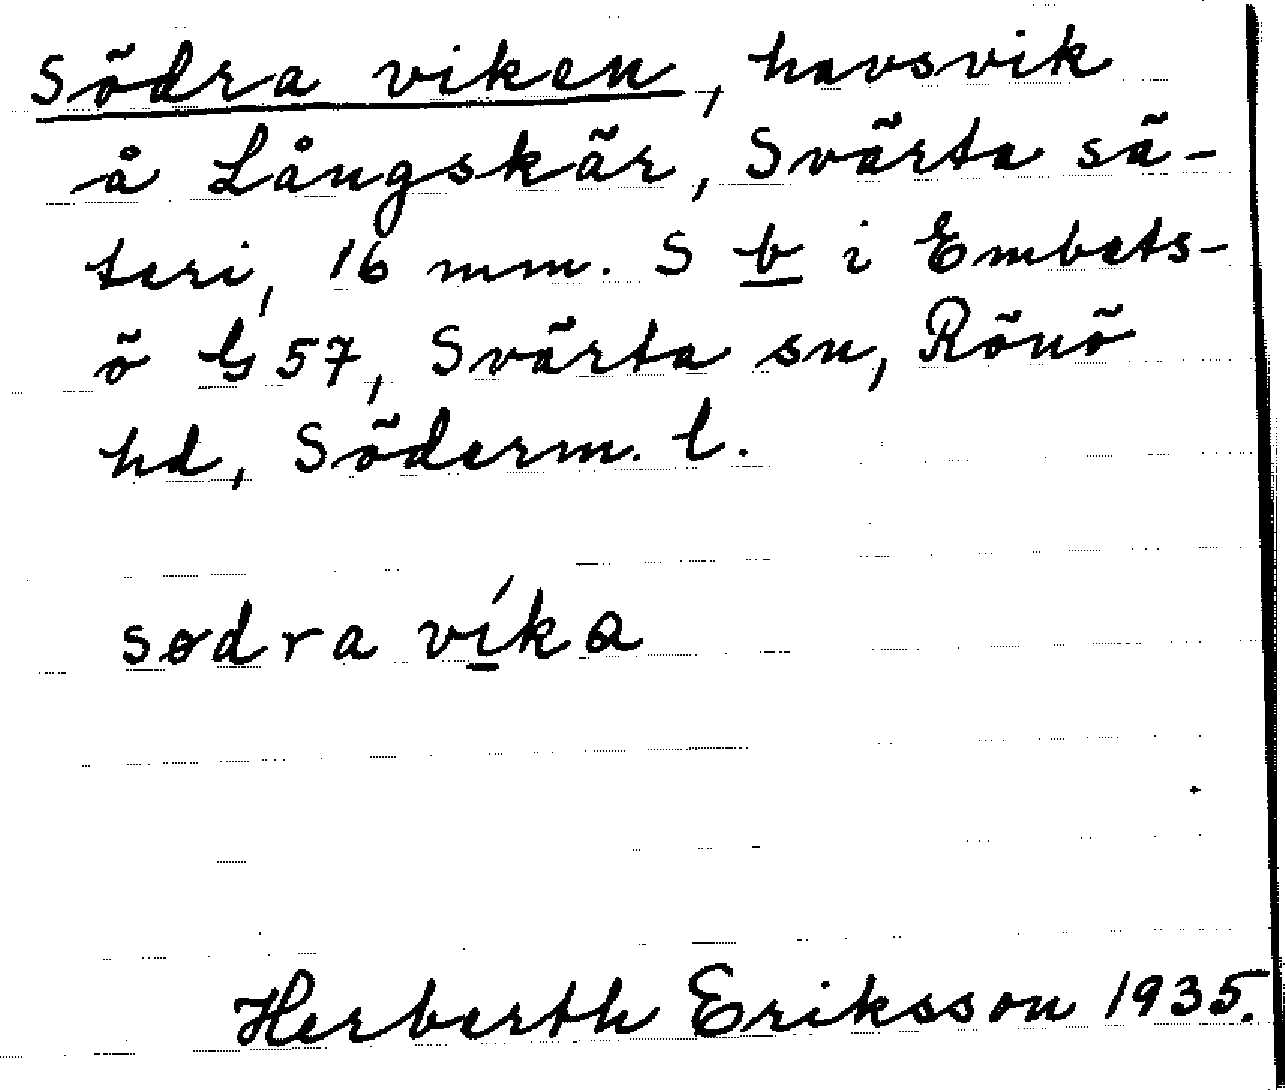 Södra viken, havsvik
å Långskär, Svärta sä-
teri, 16 mm. S b i Embets-
ö G 57, Svärta sn, Rönö
hd, Söderm. l.
sødra víka
Herberth Eriksson 1935.